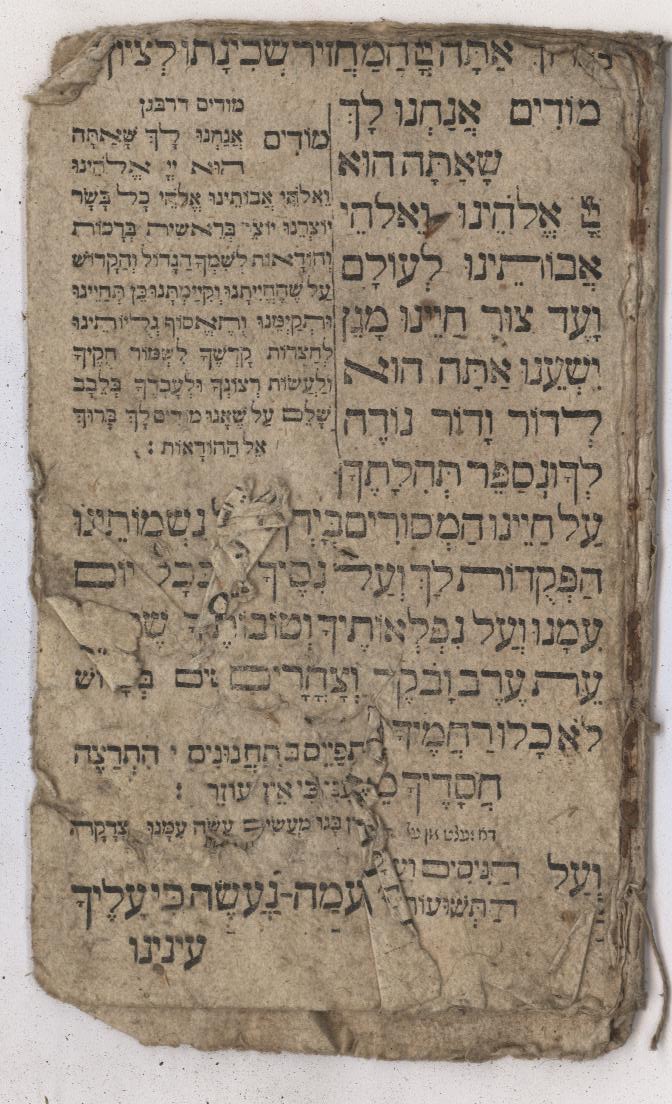 אַתָּה יְיָ הַמַּחֲזִיר שְׁכִינָתוֹ לְצִיּוֹן
מוֹדִים אֲנַחְנוּ לָךְ
שָׁאַתָּה הוּא
יְיָ אֱלֹהֵינוּ וֵאלֹהֵי
אֲבוֹתֵינוּ לְעוֹלָם
וָעֶד צוּר חַיֵּינוּ מָגֵן
יִשְׁעֵנוּ אַתָּה הוּא
לְדוֹר וָדוֹר נוֹדֶה
לְךָ וּנְסַפֵּר תְּהִלָּתֶךָ
מודים דרבנן
מוֹדִים אֲנַחְנוּ לָךְ שָׁאַתָּה
הוּא יְיָ אֱלֹהֵינוּ
וֵאלֹהֵי אֲבוֹתֵינוּ אֱלֹהֵי כָל בָּשָׂר
יוֹצְרֵנוּ יוֹצֵר בְּרֵאשִׁית בְּרָכוֹת
וְהוֹדָאוֹת לְשִׁמְךָ הַגָּדוֹל וְהַקָּדוֹשׁ
עַל שֶׁהֶחֱיִיתָנוּ וְקִיַּימְתָּנוּ כֵּן תְּחַיֵּינוּ
וּתְקַיְּמֵנוּ וְתֶאֱסוֹף גָּלִיּוֹתֵינוּ
לְחַצְרוֹת קָדְשֶׁךָ לִשְׁמוֹר חֻקֶּיךָ
וְלַעֲשׂוֹת רְצוֹנֶךָ וּלְעָבְדְּךָ בְּלֵבָב
שָׁלֵם עַל שֶׁאָנוּ מוֹדִים לָךְ בָּרוּךְ
אֵל הַהוֹדָאוֹת :
עַל חַיֵּינוּ הַמְּסוּרִים בְּיָדֶךָ נִשְׁמוֹתֵינוּ
הַפְּקֻדוֹת לָךְ וְעַל נִסֶּיךָ שֶׁבְּכָל יוֹם
עִמָּנוּ וְעַל נִפְלְאוֹתֶיךָ וְטוֹבוֹתֶיךָ
עֵת עֶרֶב וָבֹקֶר וְצָהֳרָיִם
לֹא כָלוּ רַחֲמֶיךָ
תִפַּיֵּס בְּתַחֲנוּנִים הִתְרַצֶּה
חֲסָדֶיךָ כִּי אֵין עוֹזֵר :
בָּנוּ מַעֲשִׂים עֲשֵׂה עִמָּנוּ צְדָקָה
וְעַל הַנִּיסִּים
הַתְּשׁוּעוֹת
מַה נַּעֲשֶׂה כִּי עָלֶיךָ
עֵינֵינוּ